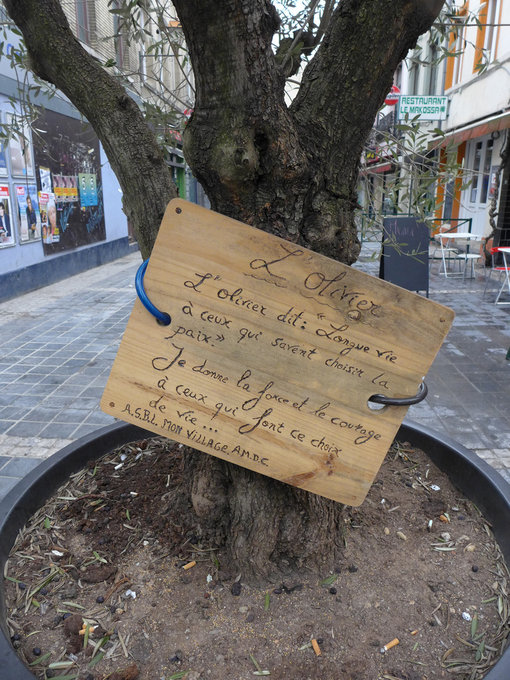 RESTAURANT
LE MAKOSSA
L'Olivier
L'Olivier dit: "Longue vie
à ceux qui savent choisir la
paix."
Je donne la force et le courage
à ceux qui font ce choix
de vie...
A.S.B.L. MON VILLAGE, A.M.D.C